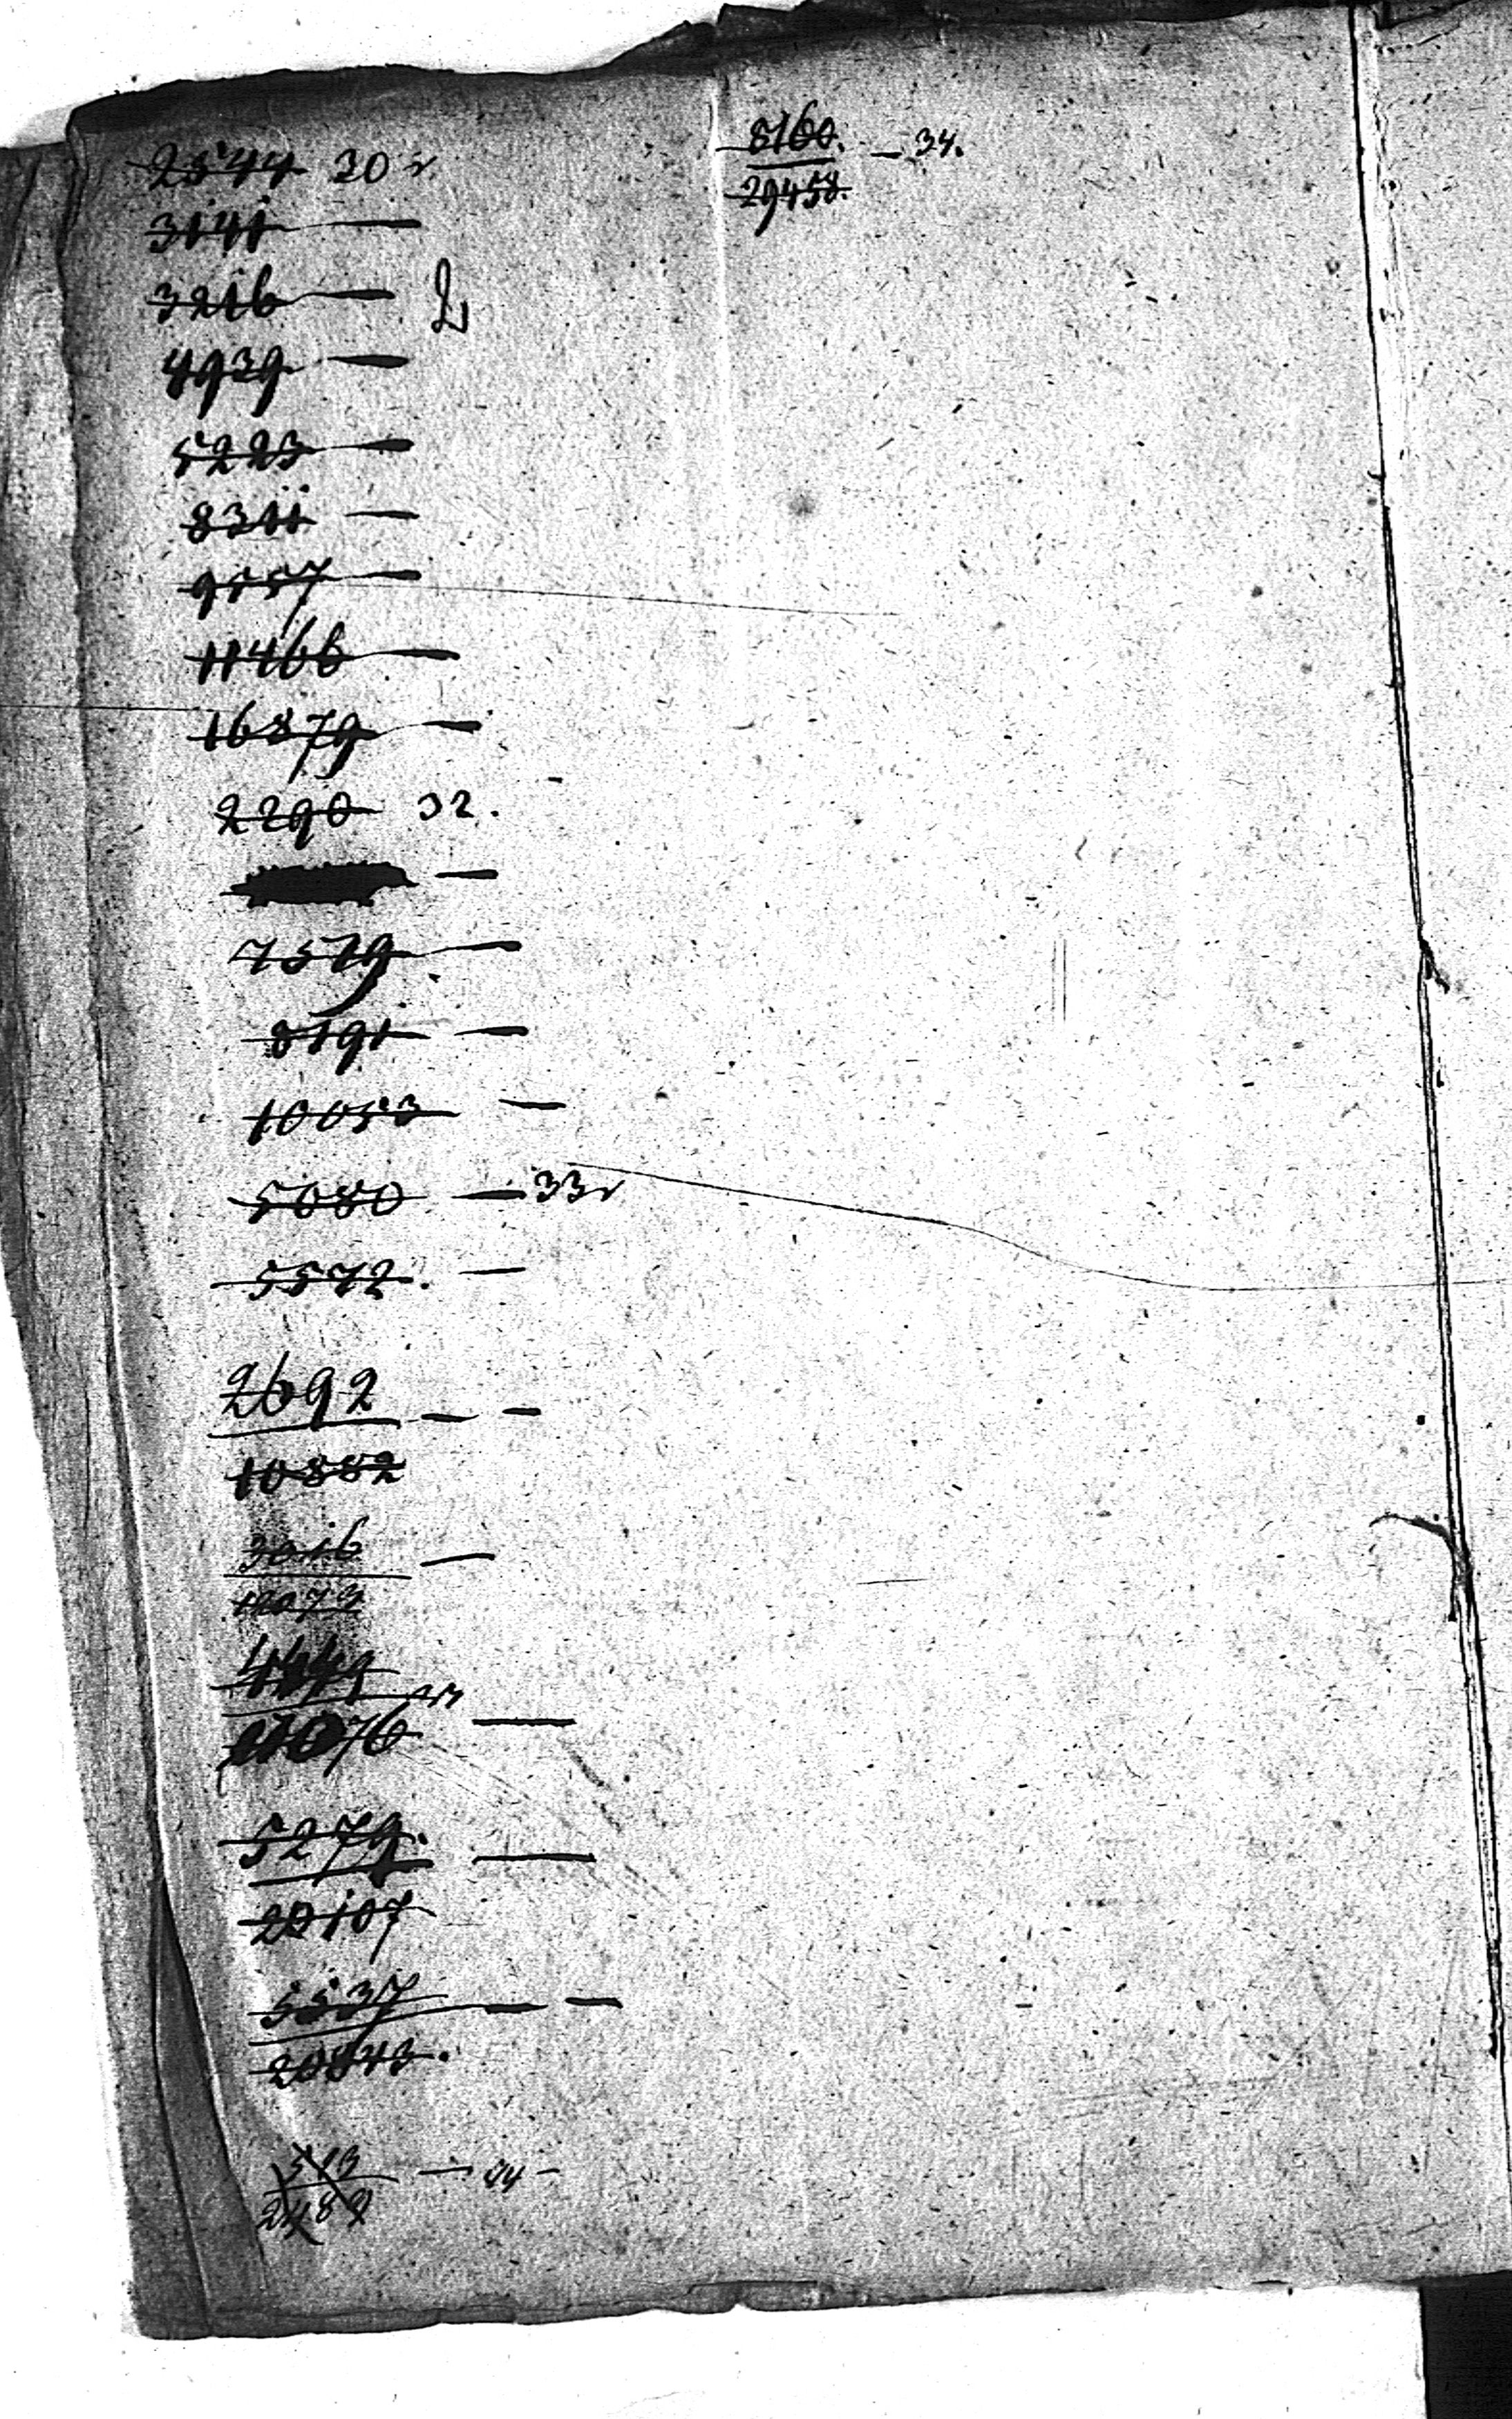 2544 30 г
3141 —
3216 —
4939 —
5223 —
8311 —
9557 —
11466 —
16879 —
2290 32.
—
7579 —
8191 —
10053 —
5080 — 33 г
5572. —
2692 — —
10882
3016 —
12073
76 —
5279. —
20107
5537 — —
20843.
513 — 34 —
2482
8160. — 34.
29458.